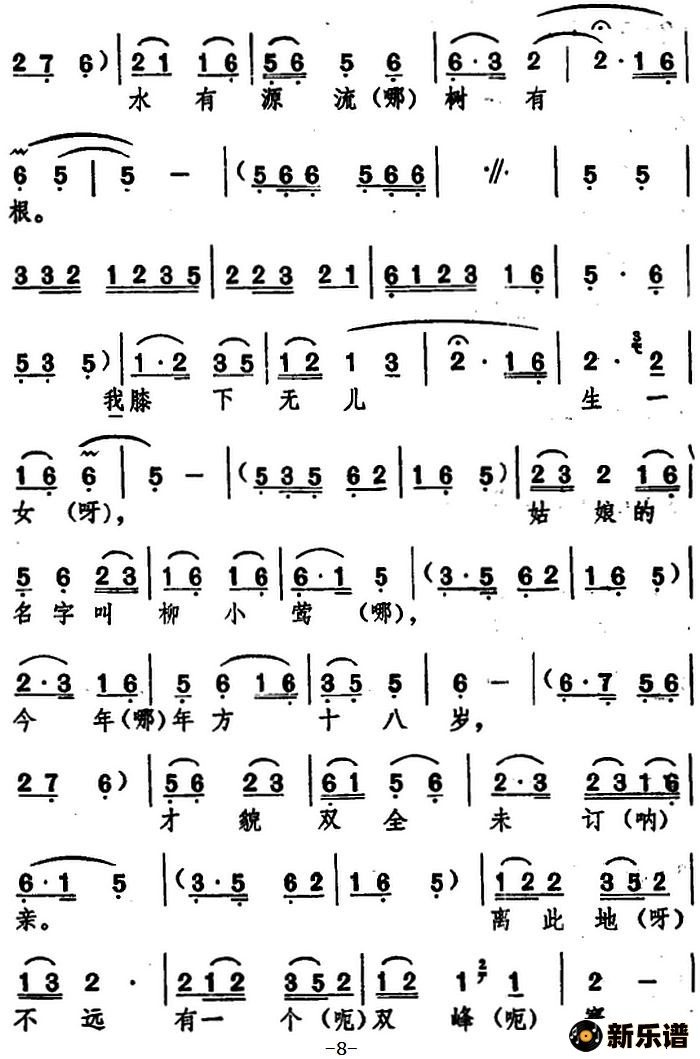 2 7 6) | 2 1 1 6 | 5 6 5 6 | 6·3 2 | 2·1 6
水 有 源 流(哪) 树 有
6 5 | 5 — | (5 6 6 5 6 6 | ·//· | 5 5
根。
3 3 2 1 2 3 5 | 2 2 3 2 1 | 6 1 2 3 1 6 | 5 · 6
5 3 5) | 1·2 3 5 | 1 2 1 3 | 2·1 6 | 2· 2
我膝 下 无 儿 生 一
1 6 6 | 5 — | (5 3 5 6 2 | 1 6 5) | 2 3 2 1 6
女 (呀), 姑 娘 的
5 6 2 3 | 1 6 1 6 | 6·1 5 | (3·5 6 2 | 1 6 5)
名 字 叫 柳 小 莺 (哪),
2·3 1 6 | 5 6 1 6 | 3 5 5 | 6 — | (6·7 5 6
今 年(哪)年 方 十 八 岁,
2 7 6) | 5 6 2 3 | 6 1 5 6 | 2·3 2 3 1 6
才 貌 双 全 未 订 (呐)
6·1 5 | (3·5 6 2 | 1 6 5) | 1 2 2 3 5 2
亲。 离 此 地 (呀)
1 3 2 · | 2 1 2 3 5 2 | 1 2 1 1 | 2 —
不 远 有 一 个 (呃)双 峰 (呃)
新乐谱
-8-